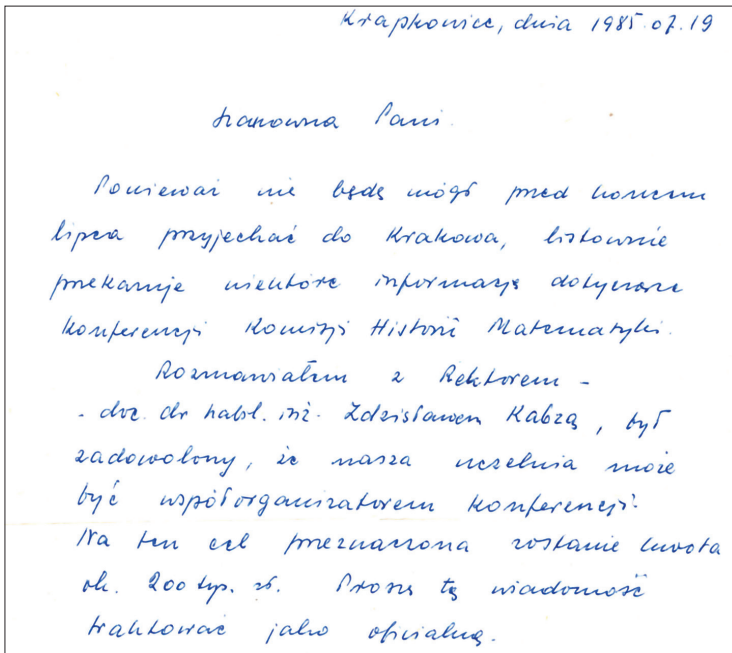 Krapkowice, dnia 1985.07.19
Szanowna Pani.
Ponieważ nie będę mógł przed końcem
lipca przyjechać do Krakowa, listownie
przekazuję niektóre informacje dotyczące
Konferencji Komisji Historii Matematyki.
Rozmawiałem z Rektorem -
- doc. dr habil. inż. Zdzisławem Kabzą, był
zadowolony, że nasza uczelnia może
być współorganizatorem konferencji.
Na ten cel przeznaczona zostanie kwota
ok. 200 tys. zł. Proszę tę wiadomość
traktować jako oficjalną.